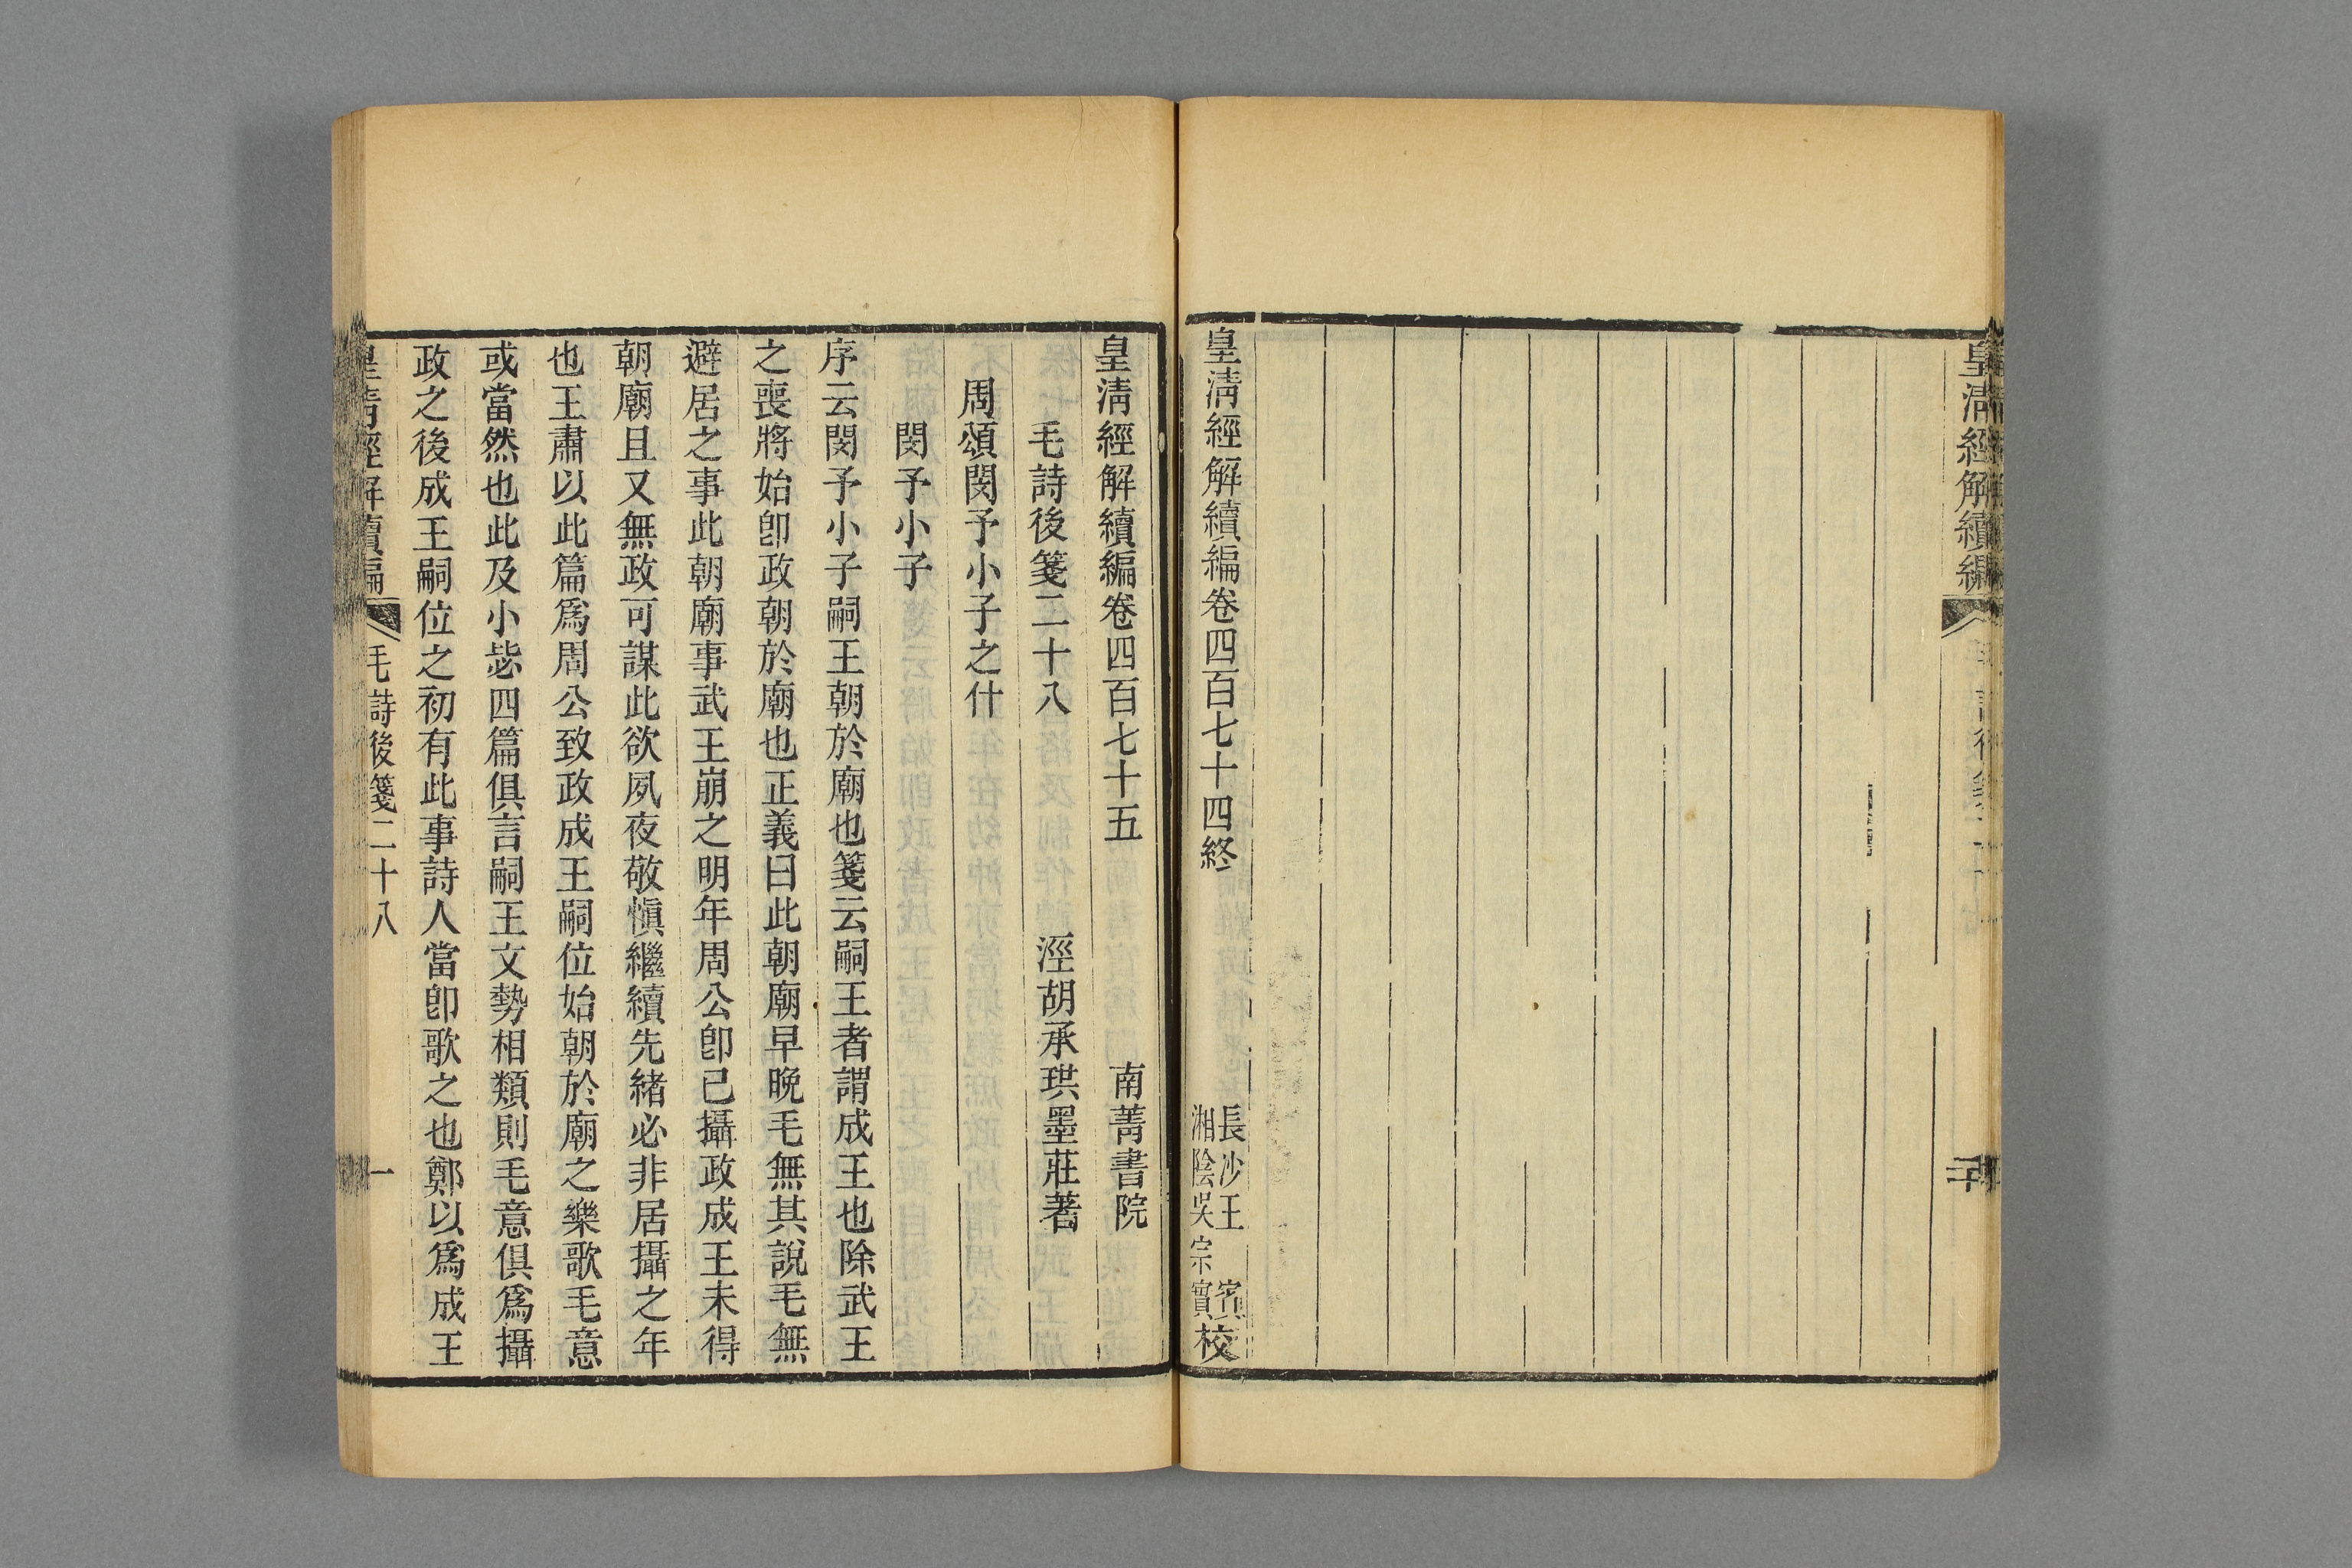 皇清經解續編
皇清經解續編卷四百七十四終
長沙王賓
湘陰吳宗實
校
皇清經解續編卷四百七十五
南菁書院
毛詩後箋二十八
涇胡承珙墨莊著
周頌閔予小子之什
閔予小子
序云閔予小子嗣王朝於廟也箋云嗣王者謂成王也除武王
之喪將始卽政朝於廟也正義曰此朝廟早晚毛無其說毛無
避居之事此朝廟事武王崩之明年周公卽已攝政成王未得
朝廟且又無政可謀此欲夙夜敬愼繼續先緖必非居攝之年
也王肅以此篇爲周公致政成王嗣位始朝於廟之樂歌毛意
或當然也此及小毖四篇俱言嗣王文勢相類則毛意俱爲攝
政之後成王嗣位之初有此事詩人當卽歌之也鄭以爲成王
皇清經解續編
毛詩後箋二十八
一